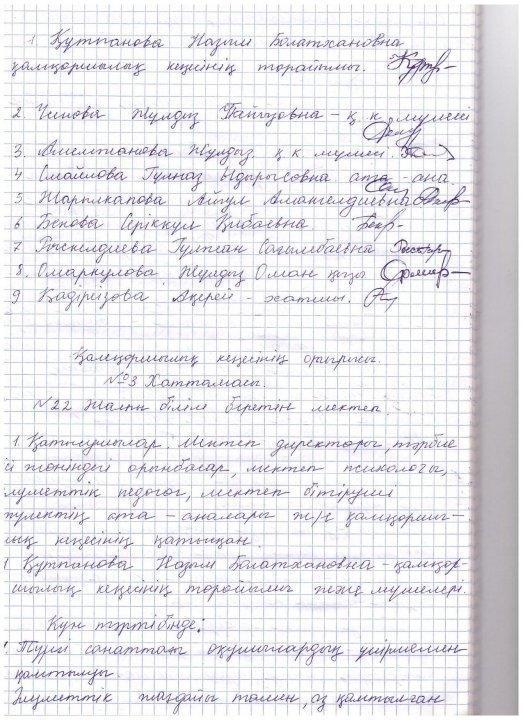 1 Құтпанова Назым Болатхановна
қамқоршылық кеңесінің төрайымы.
2. Жулдыз – қ к мүшесі
3. Жулдыз қ к мүшесі.
4. Смаилова Гулназ Ыдырысовна ата-ана.
5 Жарылкапова Айгул Амангелдиевна
6 Бекова Серіккул
7 Гулжан Сагымбаевна
8. Омаркулова Жулдыз Оман қызы
9 - хатшы.
Қамқоршылық кеңесінің отырысы.
№3 Хаттамасы.
№22 Жалпы білім беретін мектеп.
1. Қатысушылар Мектеп директоры, тәрбие
ісі жөніндегі орынбасар, мектеп психологы,
әлуметтік педогог, мектеп бітіруші
түлектің ата – аналары ж/е қамқоршы-
лық кеңесінің қатысқан.
1 Құтпанова Назым Болатхановна – қамқор-
шылық кеңесінің төрайымы және мүшелері.
Күн тәртібінде:
1 Түрлі санаттағы оқушылардың үйірмемен
қамтылуы.
Әлуметтік жағдайы төмен, аз қамтылған